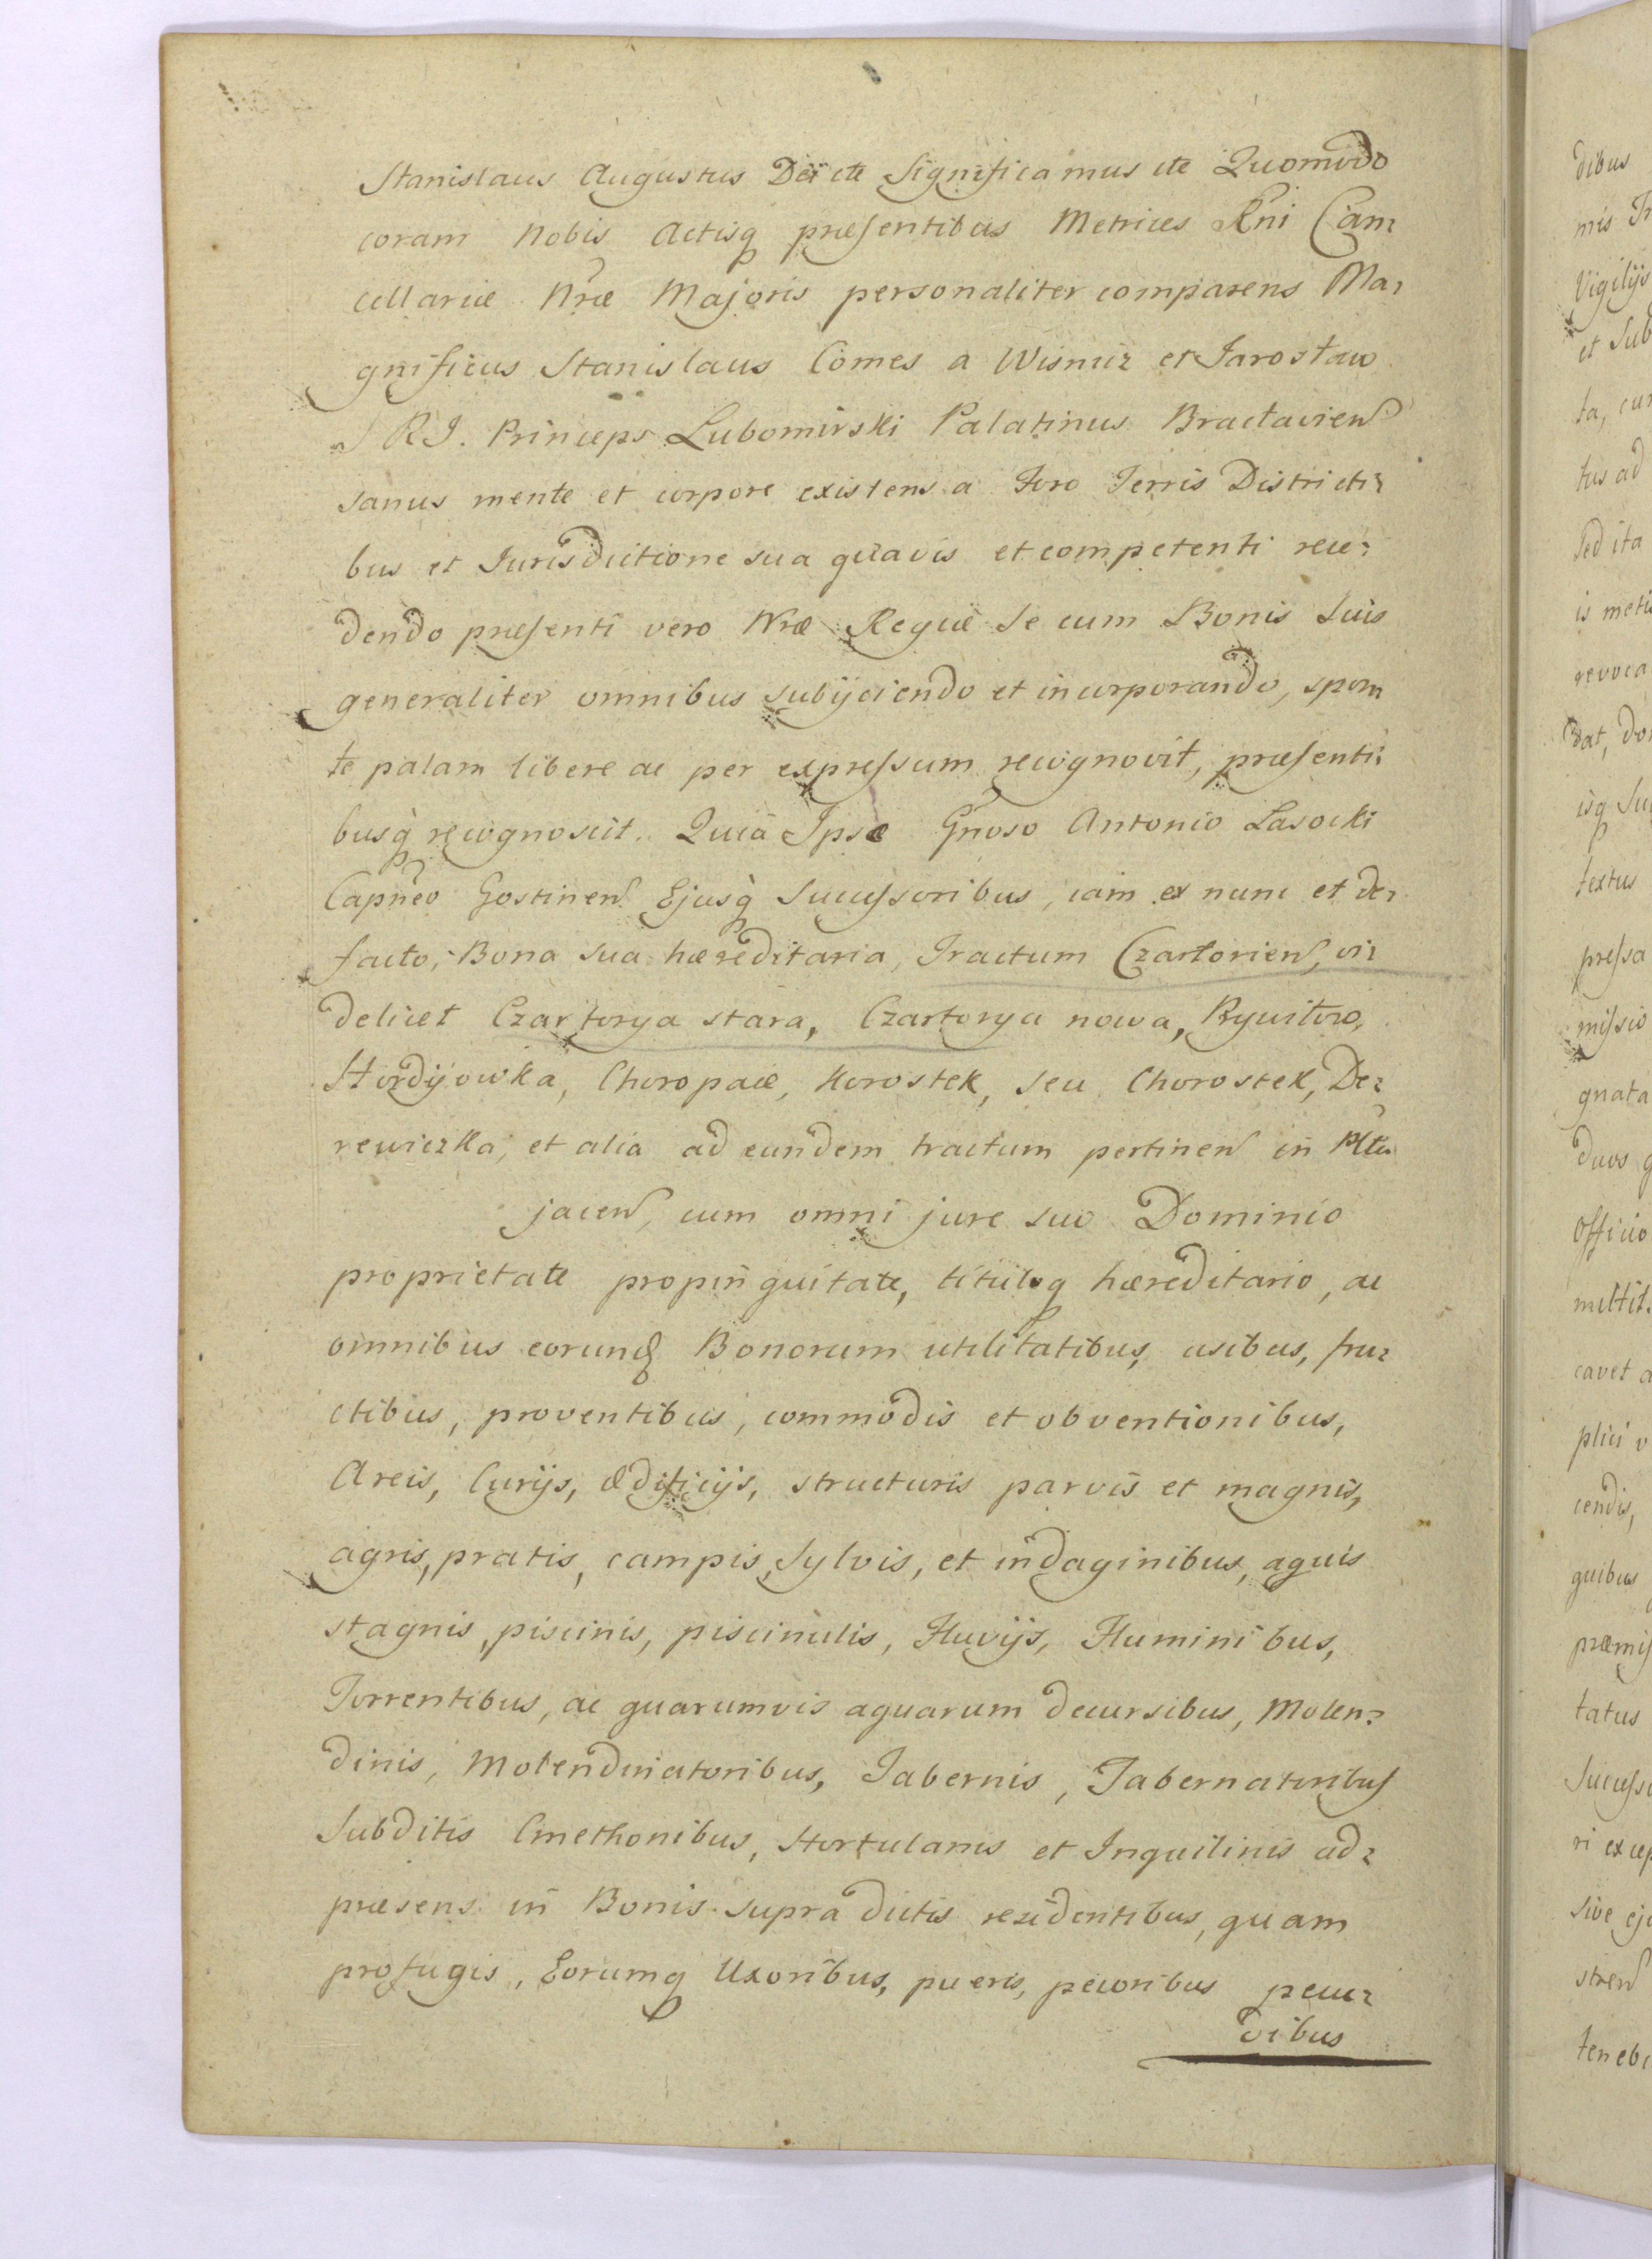 Stanislaus Augustus Dei etc Significamus etc Quomodo
coram Nobis Actisq præsentibus Metrices Rni Can=
cellariæ Nræ Majoris personaliter comparens Ma=
gnificus Stanislaus Comes a Wisnicz et Jarosław
S R J. Princeps Lubomirski Palatinus Bracłavien
sanus mente et corpore existens a Foro Terris Districti=
bus et Jurisdictione sua quavis et competenti rece=
dendo præsenti vero Nræ Regiæ Se cum Bonis Suis
generaliter omnibus subijciendo et incorporando, spon
te palam libere ac per expressum recognovit, præsenti=
busq recognoscit. Quia Ipse Gnoso Antonio Lasocki
Capneo Gostinen Ejusq Successoribus, iam ex nunc et de=
facto, Bona sua hæreditaria, Tractum Czartorien, vi=
delicet Czartorya stara, Czartorya nowa, Rywitow,
Hordijowka, Choropaie, Korostek, seu Chorostek, De=
rewiczka, et alia ad eundem tractum pertinen in Pltu
jacen, cum omni jure suo Dominio
proprietate propinquitate, tituloq hæreditario, ac
omnibus eorund Bonorum utilitatibus, usibus, fru=
ctibus, proventibus, commodis et obventionibus,
Areis, Curijs, ædificijs, structuris parvis et magnis,
agris, pratis, campis, Sylvis, et indaginibus, aquis
stagnis, piscinis, piscinulis, Fluvijs, Fluminibus,
Torrentibus, ac quarumvis aquarum decursibus, Molen=
dinis, Molendinatoribus, Tabernis, Tabernatoribus
Subditis Cmethonibus, Hortulanis et Inquilinis ad=
præsens in Bonis supra dictis residentibus, quam
profugis, Eorumq Uxoribus, pueris, pecoribus pecu=
dibus
dibus
nis
Vigilijs
et Sub
ta, cu
tus ad
Sed ita
is
revoca
dat, do
isq Su
textus
pressa
missio
gnata
duos
Officio
mittit
cavet a
plici
cendis,
quibus
præmis
tatus
Successo
ri excep
Sive
stren
teneb